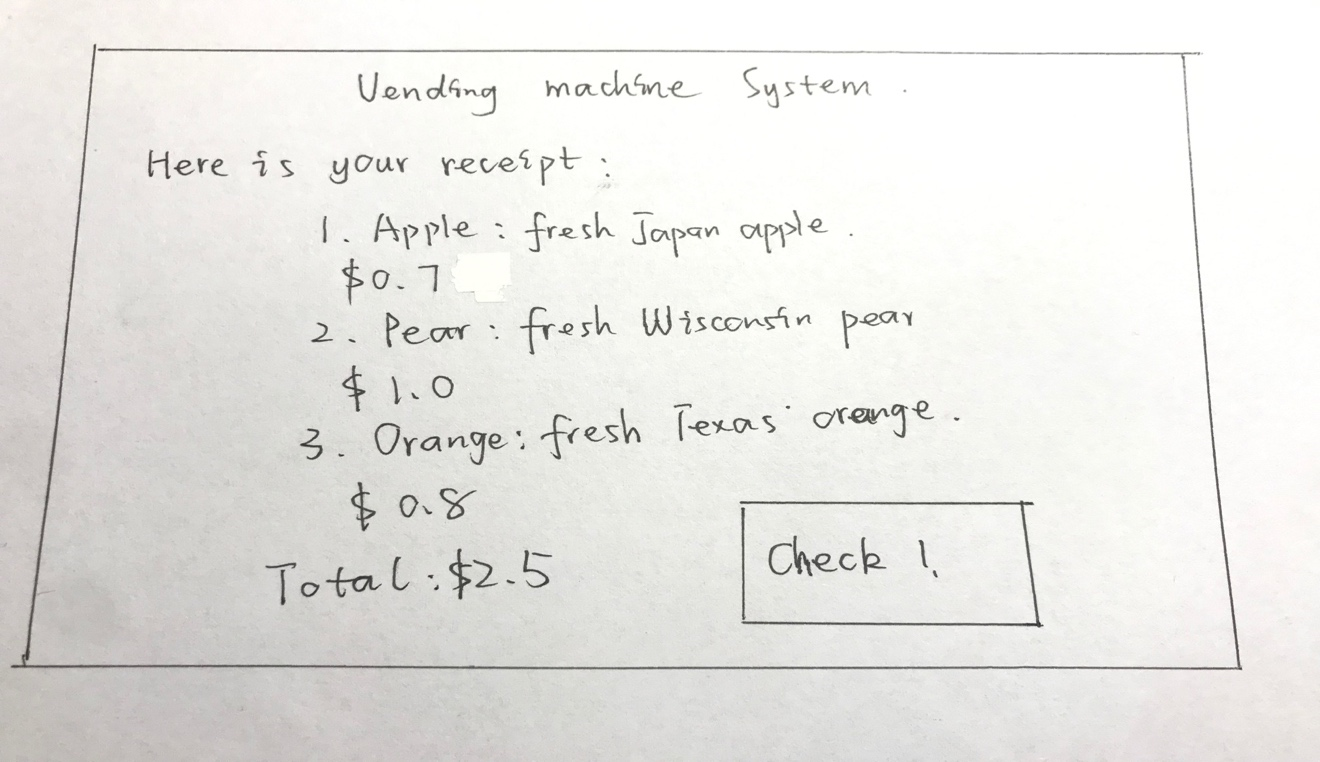 Vending machine System.
Here is your receipt:
1. Apple: fresh Japan apple.
$0.7
2. Pear: fresh Wisconsin pear
$1.0
3. Orange: fresh Texas orange.
$0.8
Total: $2.5
Check!